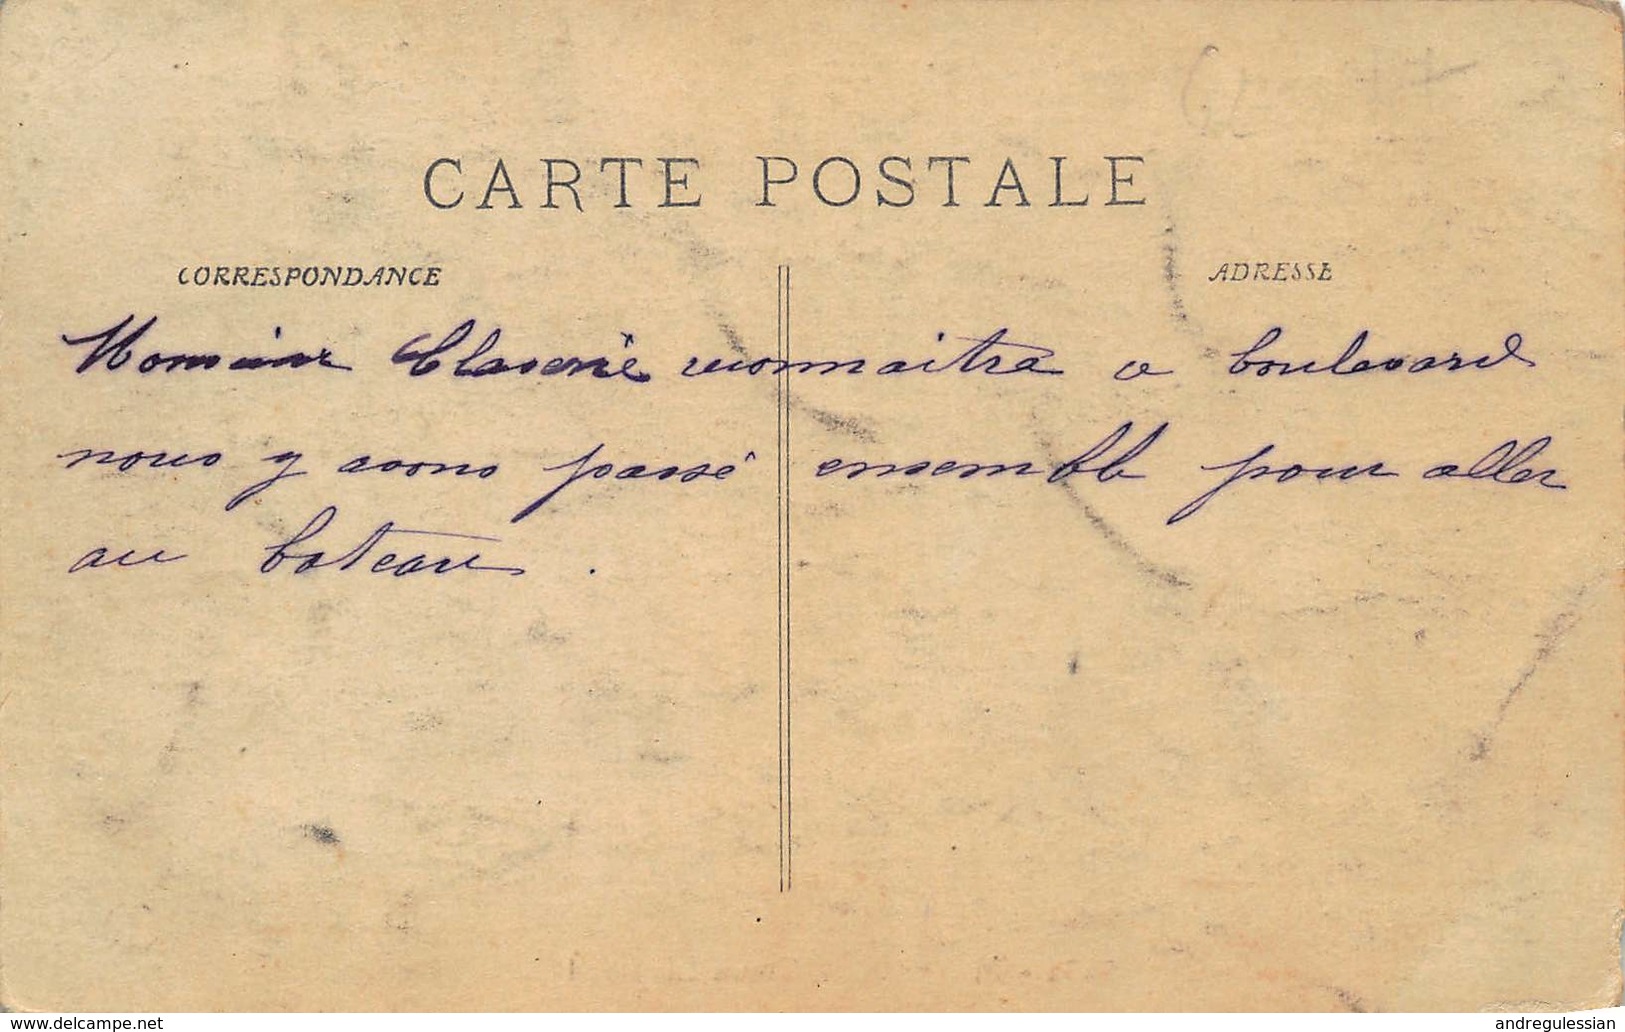 CARTE POSTALE
CORRESPONDANCE
ADRESSE
Monsieur Claverie reconnaitra ce boulevard
nous y avons passé ensemble pour aller
au bateau.
www.delcampe.net
andregulessian